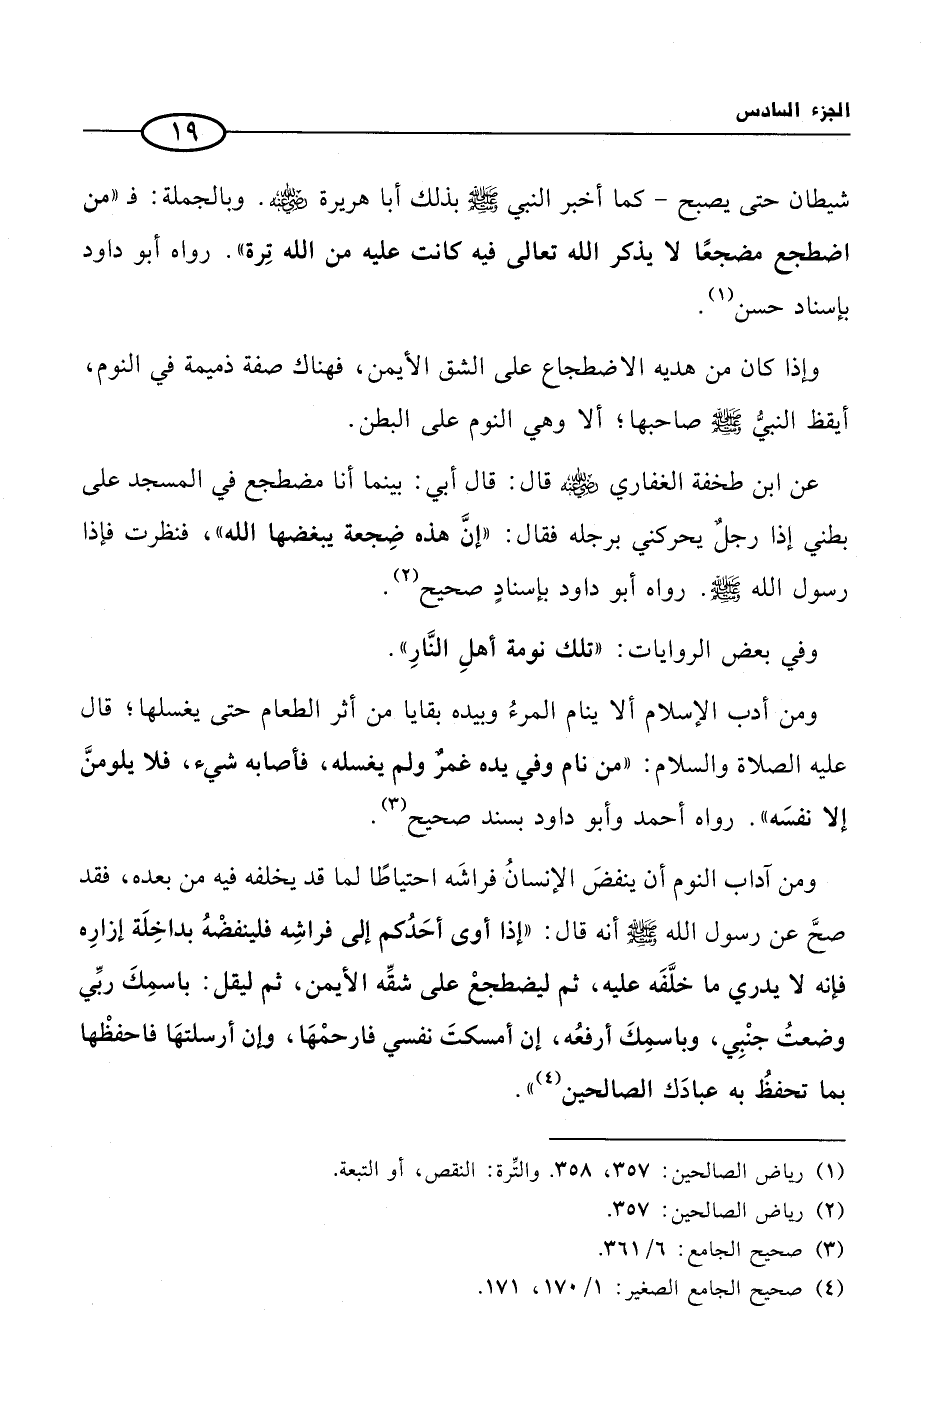 الجزء السادس
١٩
شيطان حتى يصبح - كما أخبر النبي ﷺ بذلك أبا هريرة رضي الله عنه. وبالجملة: فـ «من
اضطجع مضجعًا لا يذكر الله تعالى فيه كانت عليه من الله تِرة». رواه أبو داود
بإسناد حسن(١).
وإذا كان من هديه الاضطجاع على الشق الأيمن، فهناك صفة ذميمة في النوم،
أيقظ النبيُّ ﷺ صاحبها؛ ألا وهي النوم على البطن.
عن ابن طخفة الغفاري رضي الله عنه قال: قال أبي: بينما أنا مضطجع في المسجد على
بطني إذا رجلٌ يحركني برجله فقال: «إنَّ هذه ضِجعة يبغضها الله»، فنظرت فإذا
رسول الله ﷺ. رواه أبو داود بإسنادٍ صحيح(٢).
وفي بعض الروايات: «تلك نومة أهلِ النَّارِ».
ومن أدب الإسلام ألا ينام المرءُ وبيده بقايا من أثر الطعام حتى يغسلها؛ قال
عليه الصلاة والسلام: «من نام وفي يده غمرٌ ولم يغسله، فأصابه شيء، فلا يلومنَّ
إلا نفسَه». رواه أحمد وأبو داود بسند صحيح(٣).
ومن آداب النوم أن ينفضَ الإنسانُ فراشَه احتياطًا لما قد يخلفه فيه من بعده، فقد
صحَّ عن رسول الله ﷺ أنه قال: «إذا أوى أحَدُكم إلى فراشِه فلينفضْهُ بداخِلَة إزارِه
فإنه لا يدري ما خلَّفَه عليه، ثم ليضطجعْ على شقِّه الأيمن، ثم ليقل: باسمِكَ ربِّي
وضعتُ جنْبِي، وباسمِكَ أرفعُه، إن أمسكتَ نفسي فارحمْهَا، وإن أرسلتهَا فاحفظْها
بما تحفظُ به عبادَك الصالحين(٤)».
(١) رياض الصالحين: ٣٥٧، ٣٥٨. والتِّرة: النقص، أو التبعة.
(٢) رياض الصالحين: ٣٥٧.
(٣) صحيح الجامع: ٦/ ٣٦١.
(٤) صحيح الجامع الصغير: ١/ ١٧٠، ١٧١.